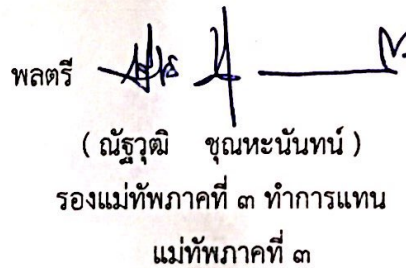 พลตรี
( ณัฐวุฒิ ชุณหะนันทน์ )
รองแม่ทัพภาคที่ ๓ ทำการแทน
แม่ทัพภาคที่ ๓